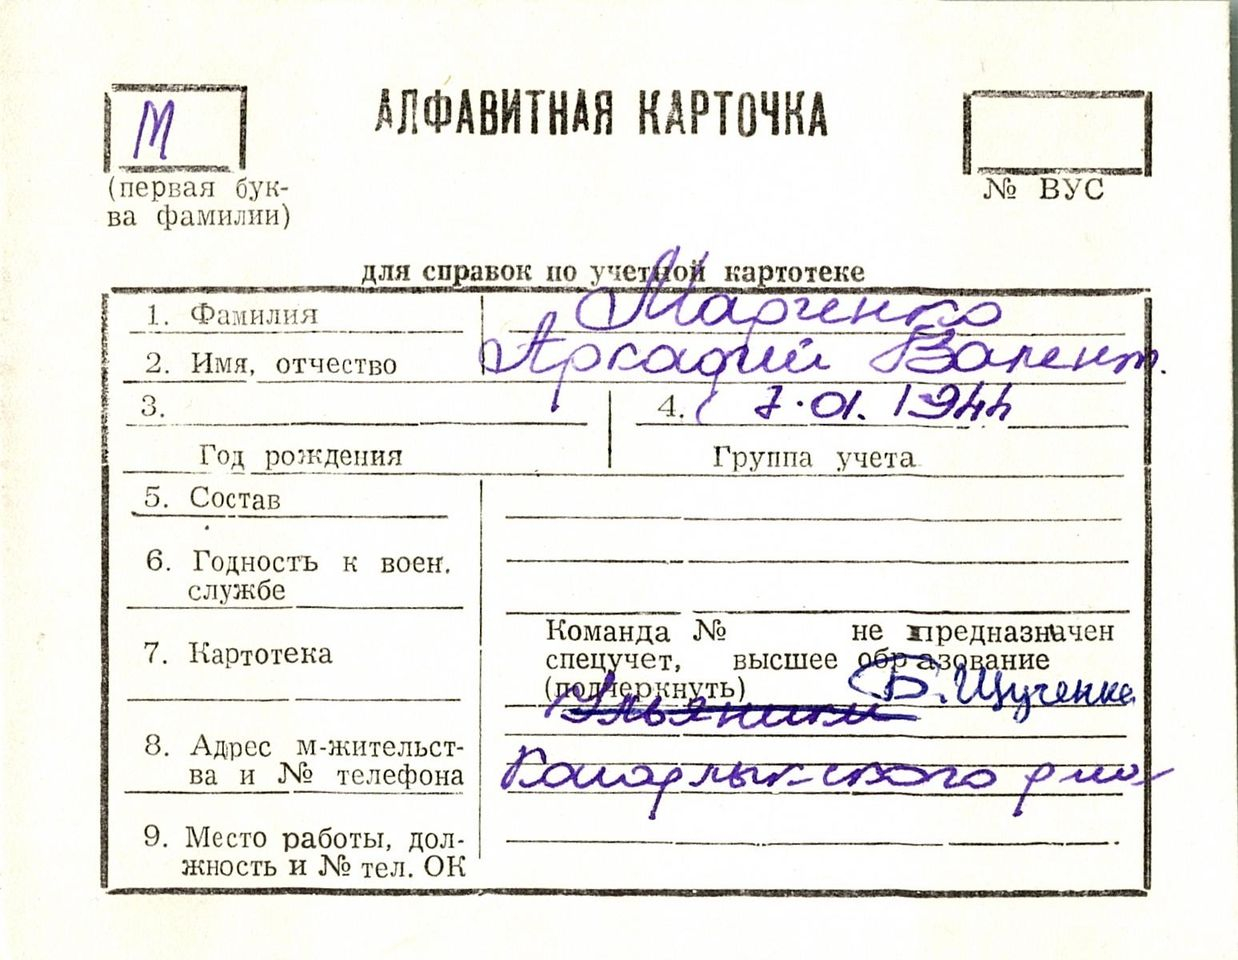 М
АЛФАВИТНАЯ КАРТОЧКА
(первая бук-
ва фамилии)
№ ВУС
для справок по учетной картотеке
1. Фамилия Марченко
2. Имя, отчество Аркадий Валент.
3. 4. 7.01.1944
Год рождения Группа учета
5. Состав
6. Годность к воен.
службе
7. Картотека
Команда № не предназначен
спецучет, высшее образование
(подчеркнуть) Б. Щученка
Ульяники
8. Адрес м-жительст-
ва и № телефона Кагарлыкского р-на
9. Место работы, дол-
жность и № тел. ОК